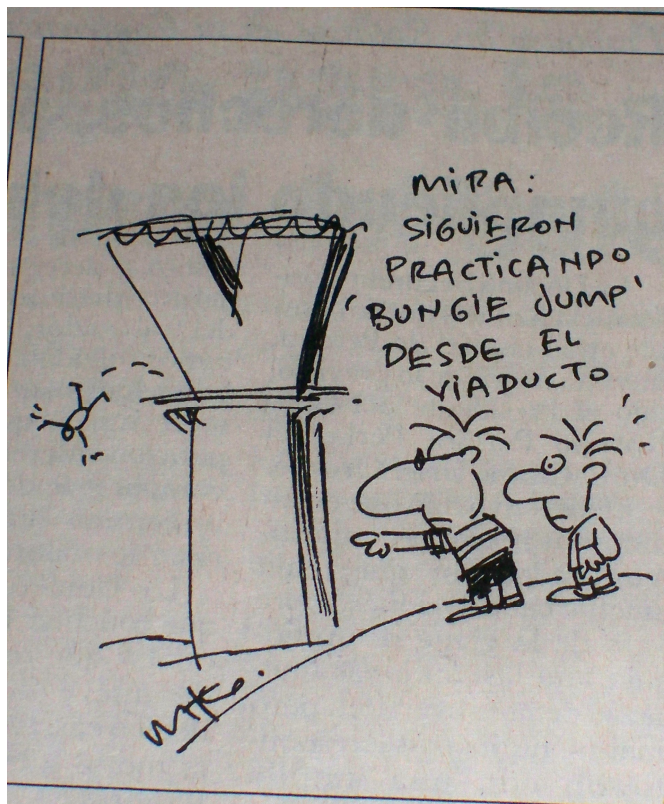 MIRA:
SIGUIERON
PRACTICANDO
'BUNGIE JUMP'
DESDE EL
VIADUCTO